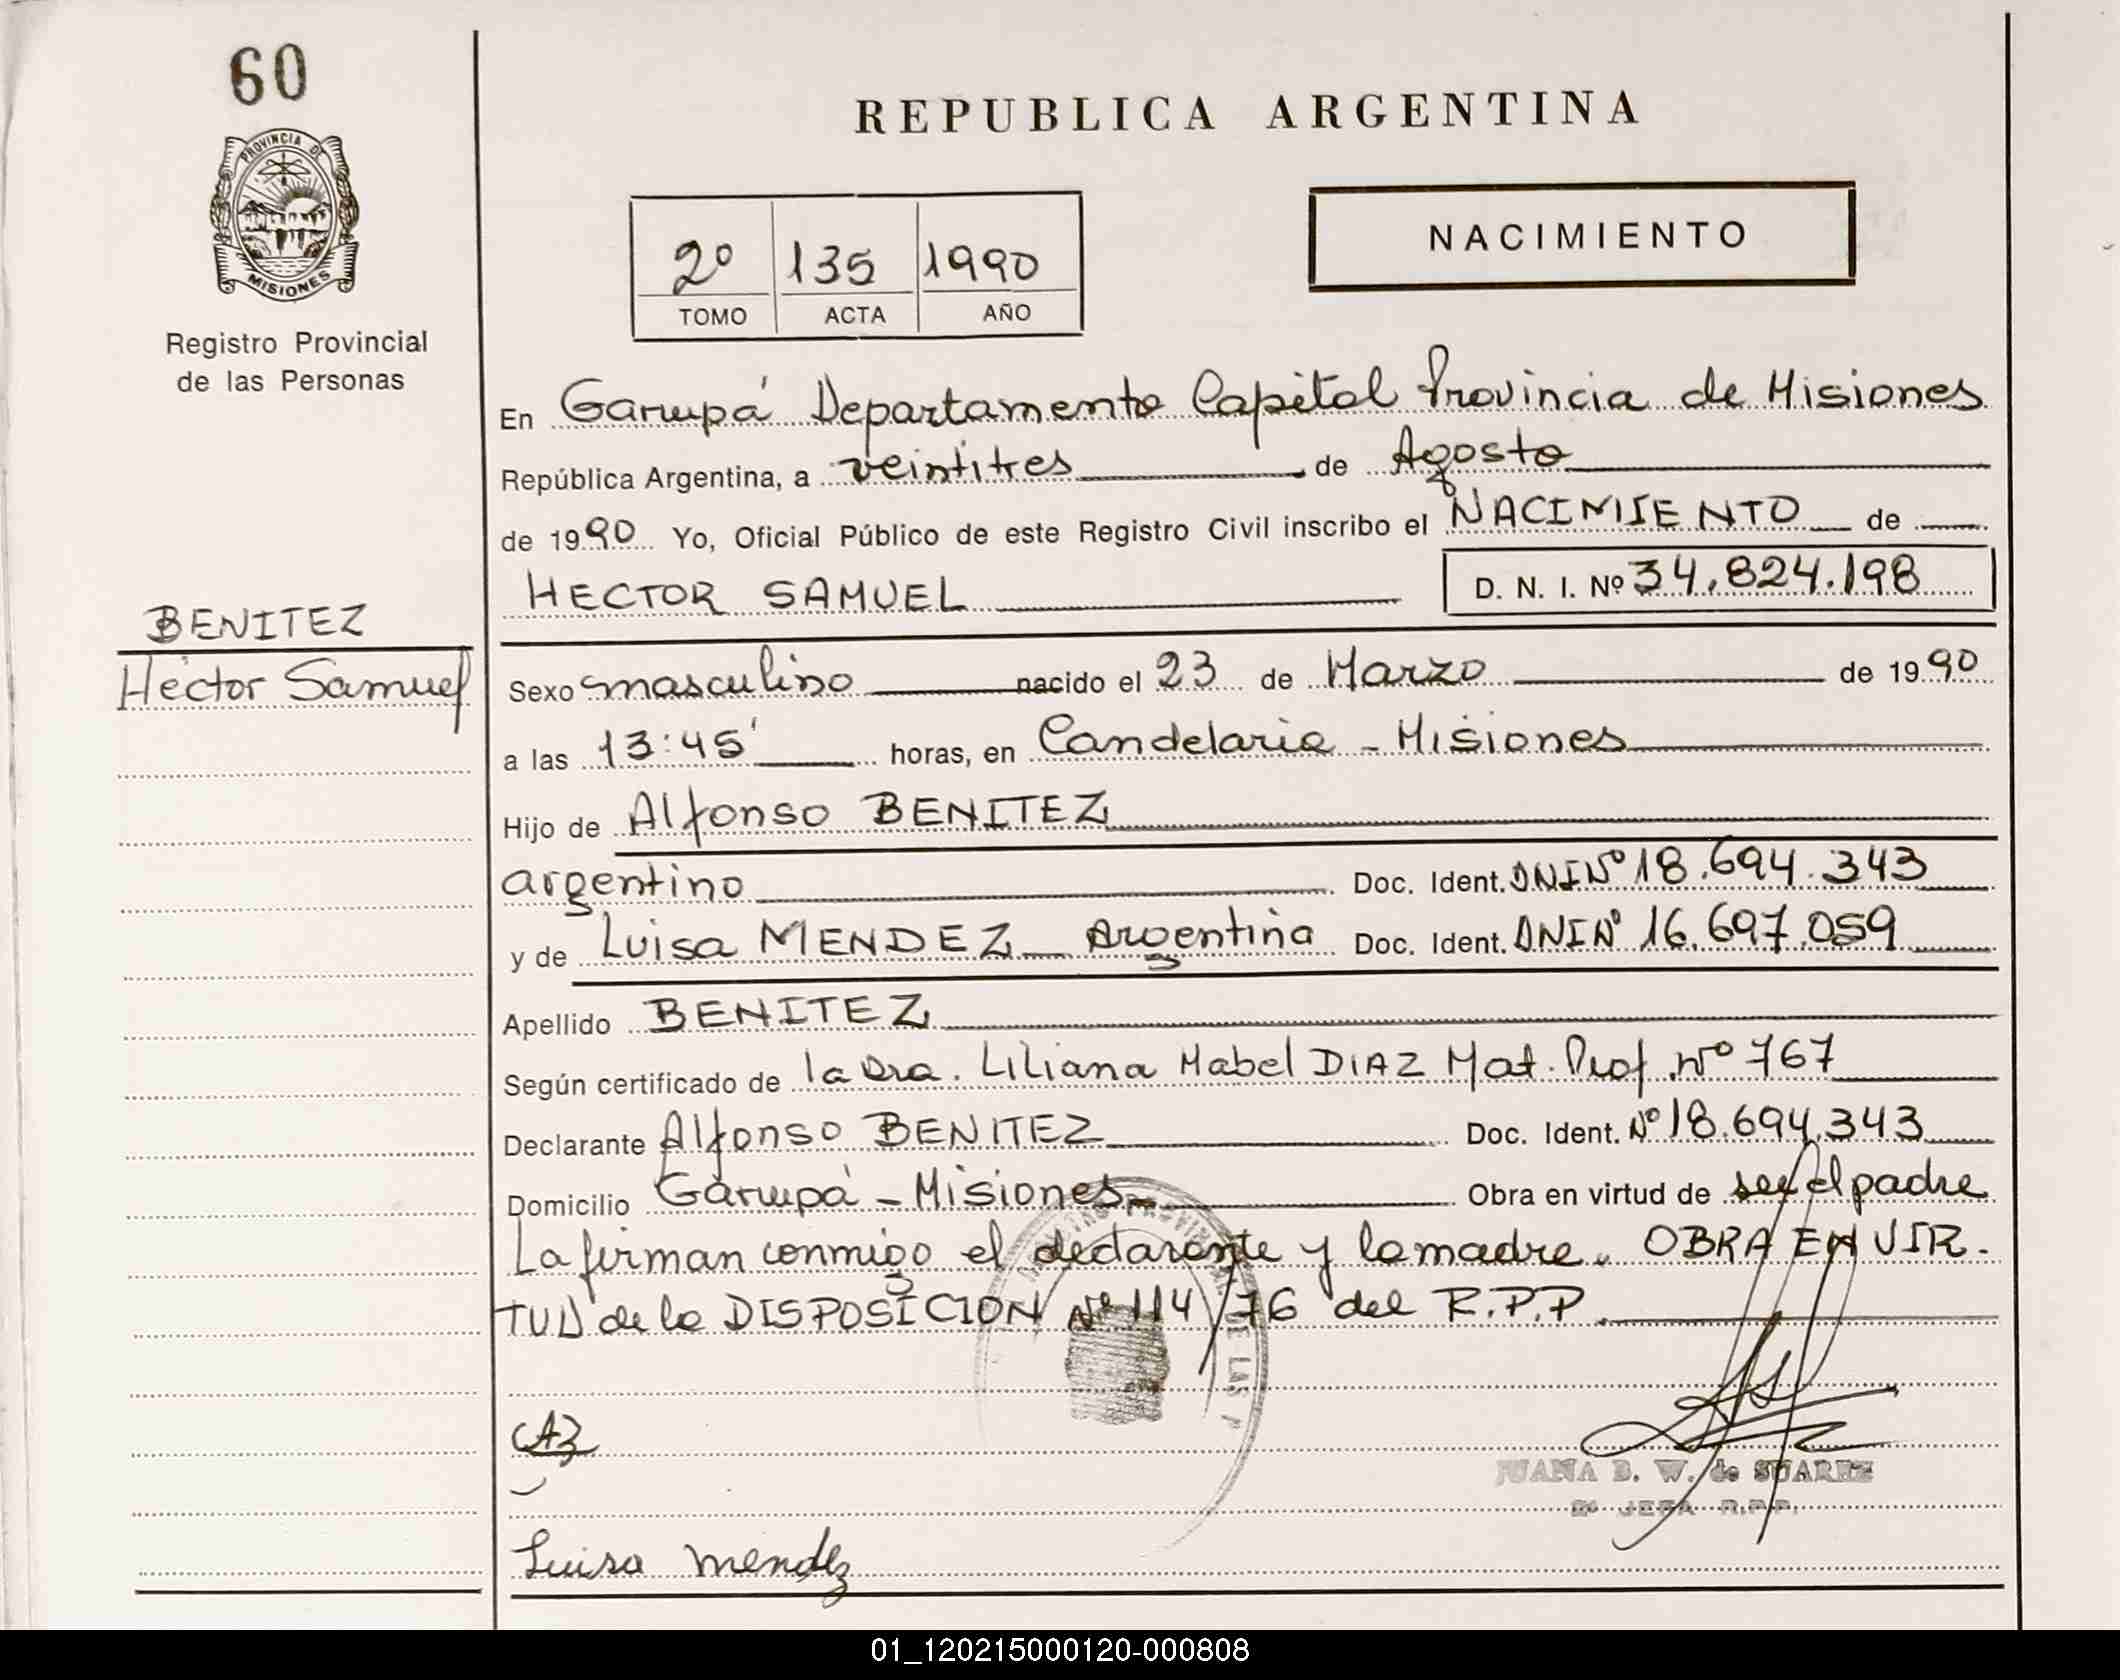 60
PROVINCIA DE
MISIONES
Registro Provincial
de las Personas
REPUBLICA ARGENTINA
NACIMIENTO
2º 135 1990
TOMO ACTA AÑO
En Garupá Departamento Capital Provincia de Misiones
República Argentina, a veintitres de Agosto
de 1990 Yo, Oficial Público de este Registro Civil inscribo el NACIMIENTO de
HECTOR SAMUEL D. N. I. Nº 34.824.198
BENITEZ
Héctor Samuel
Sexo masculino nacido el 23 de Marzo de 1990
a las 13:45' horas, en Candelaria - Misiones
Hijo de Alfonso BENITEZ
argentino Doc. Ident. DNI Nº 18.694.343
y de Luisa MENDEZ Argentina Doc. Ident. DNI Nº 16.697.059
Apellido BENITEZ
Según certificado de la Dra. Liliana Mabel DIAZ Mat. Prof. Nº 767
Declarante Alfonso BENITEZ Doc. Ident. Nº 18.694.343
Domicilio Garupá - Misiones Obra en virtud de ser el padre
La firman conmigo el declarante y la madre. OBRA EN VIR-
TUD de la DISPOSICION Nº 114/76 del R.P.P.
JUANA B. W. de SUAREZ
2ª JEFA R.P.P.
Luisa mendez
01_120215000120-000808